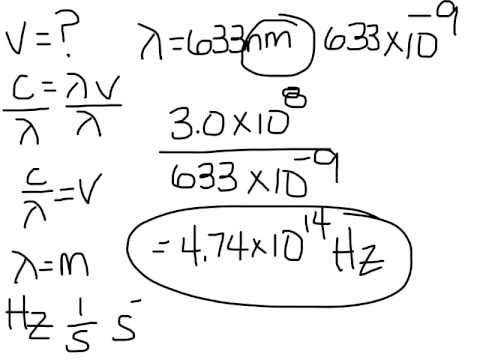 v=? λ=633nm 633×10⁻⁹
c/λ = λv/λ
3.0×10⁸ / 633×10⁻⁹
c/λ = v
= 4.74×10¹⁴ Hz
λ=m
Hz 1/s s⁻